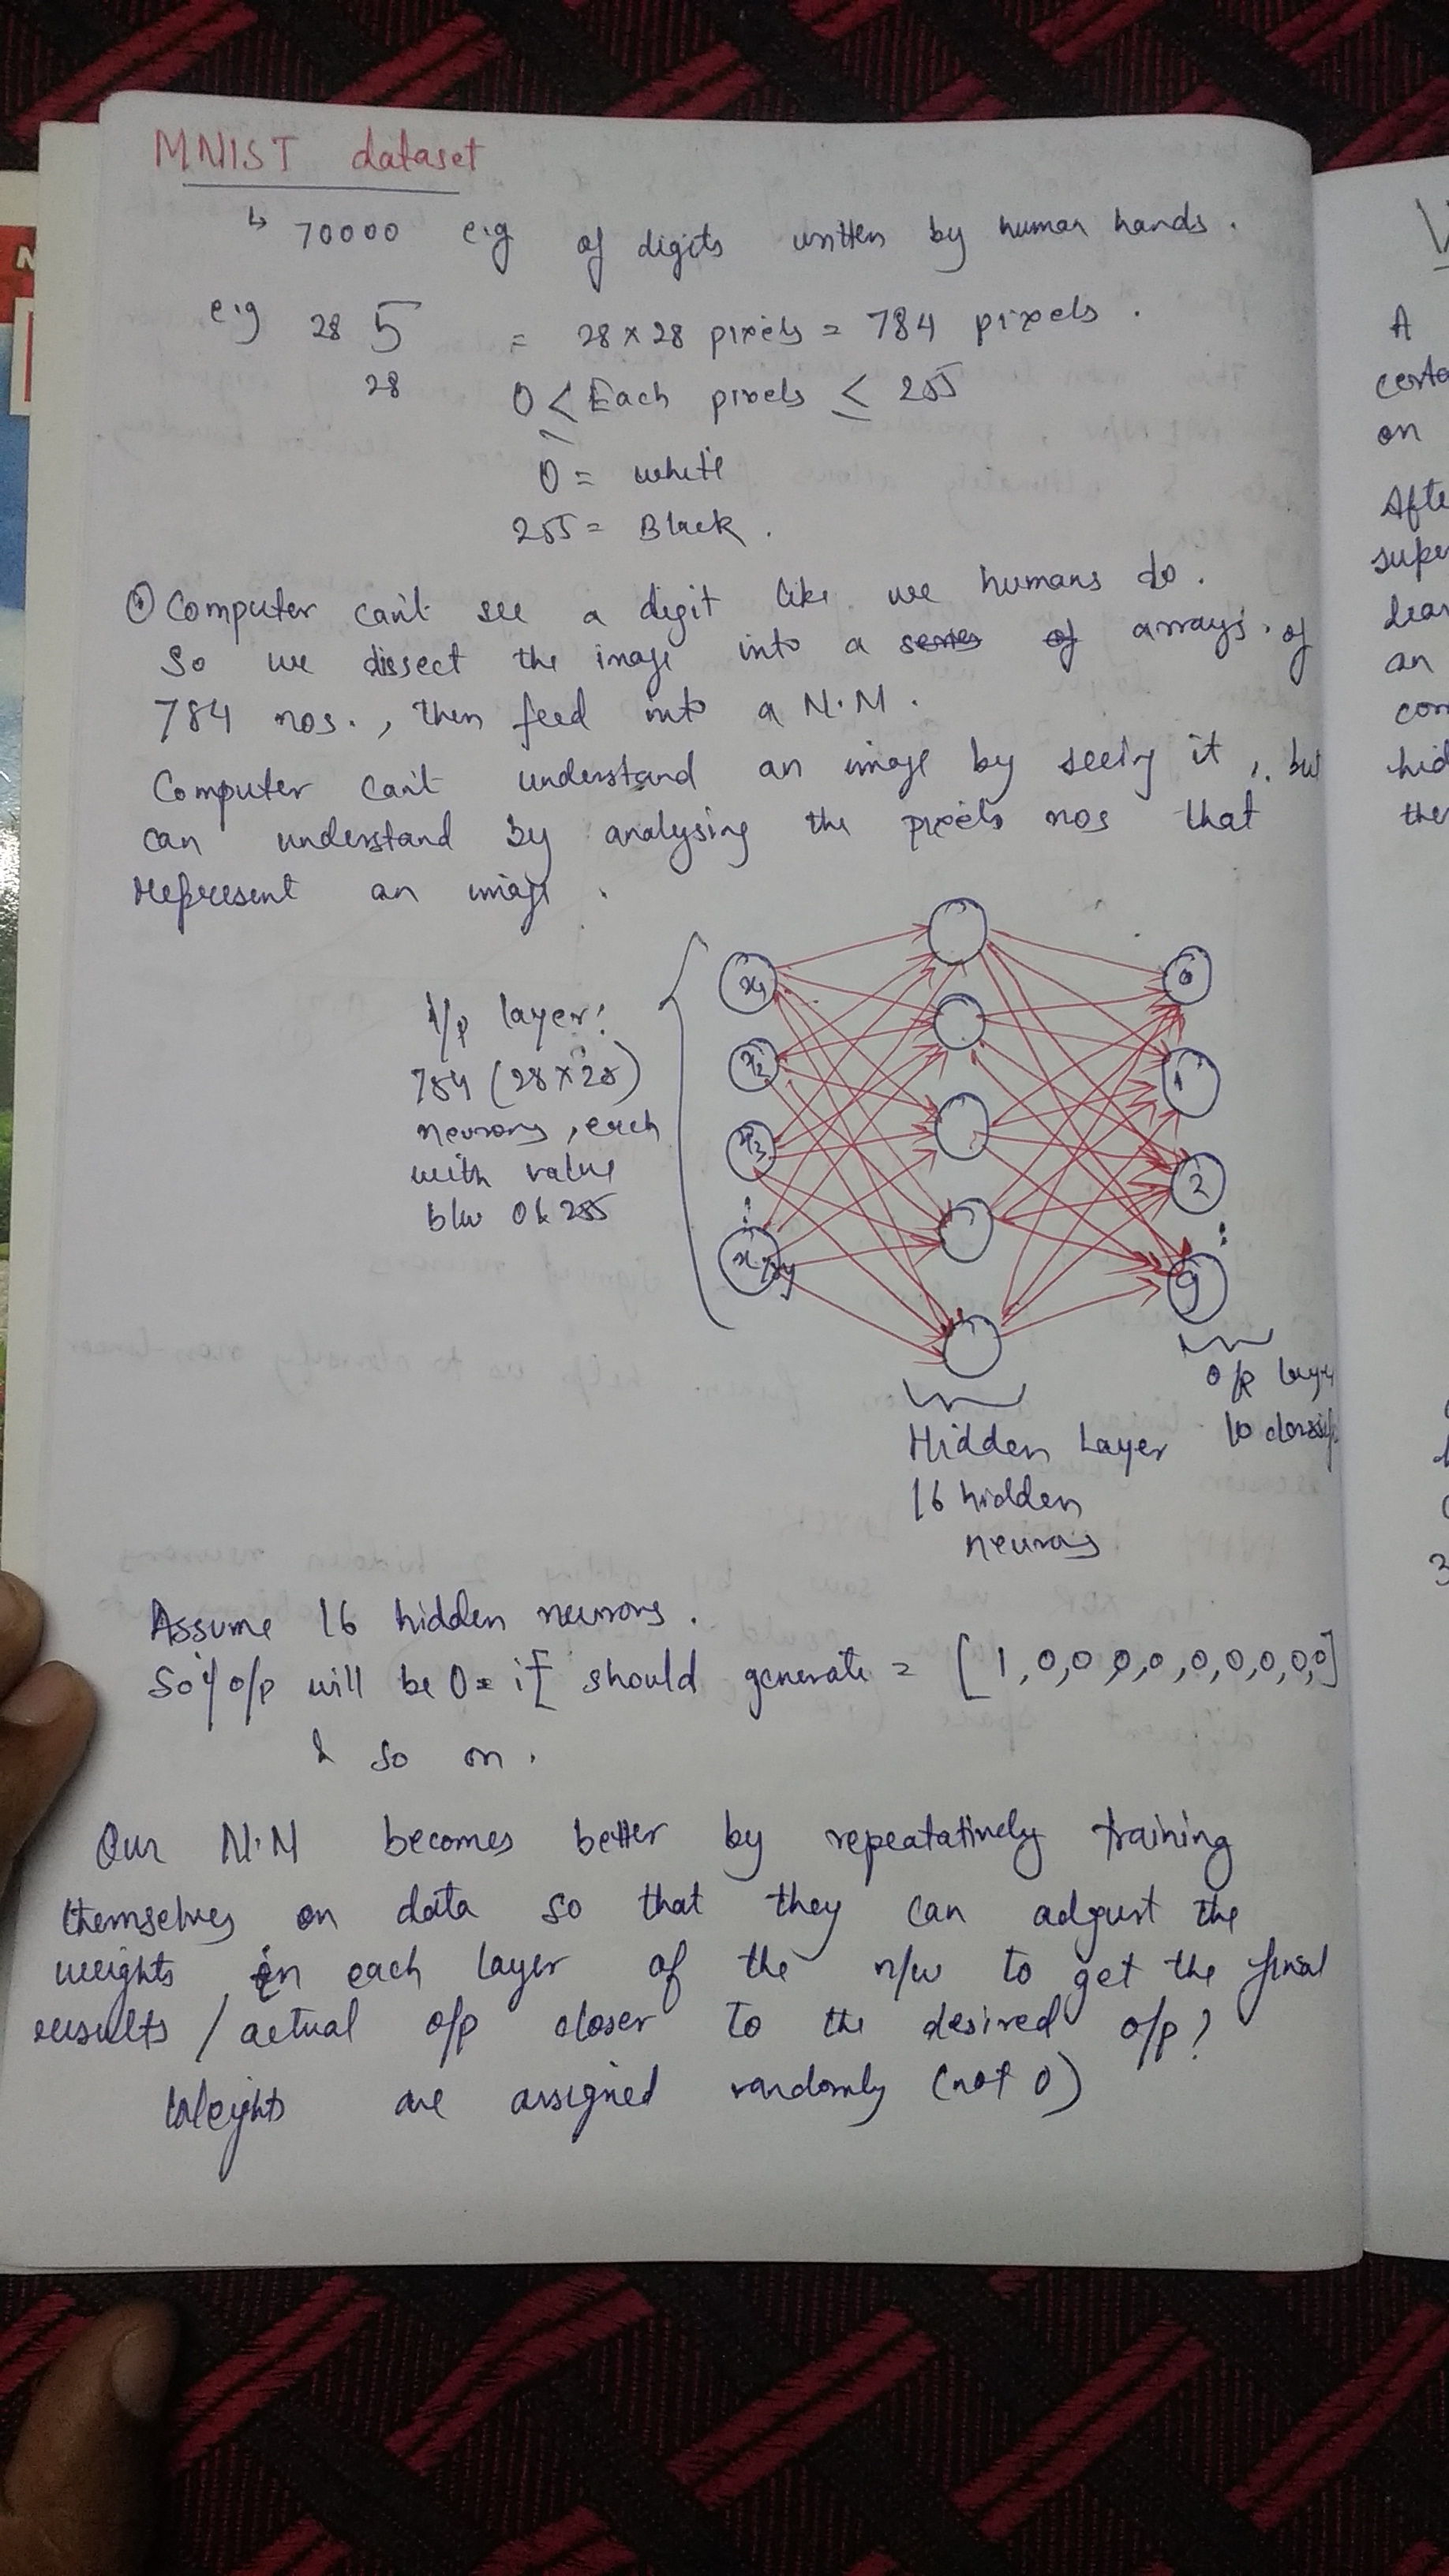 MNIST dataset
↳ 70000 e.g of digits written by human hands.
e.g 28 5 = 28 x 28 pixels = 784 pixels.
28 0 ≤ Each pixels ≤ 255
0 = white
255 = Black.
① Computer can't see a digit like we humans do.
So we dissect the image into a series of arrays of
784 nos., then feed into a N.M.
Computer can't understand an image by seeing it, but
can understand by analysing the pixels nos that
represent an image.
I/p layer:
784 (28x28)
neurons, each
with value
b/w 0 & 255
x1
x2
x3
⋮
x784
0
1
2
⋮
9
Hidden Layer
16 hidden
neurons
o/p layer
10 classif
Assume 16 hidden neurons.
So if o/p will be 0 = it should generate = [1,0,0,0,0,0,0,0,0,0]
& so on.
Our N.N becomes better by repeatatively training
themselves on data so that they can adjust the
weights in each layer of the n/w to get the final
results / actual o/p closer to the desired o/p?
Weights are assigned randomly (not 0)
A
certa
on
Afte
supe
lear
an
com
hid
the
3